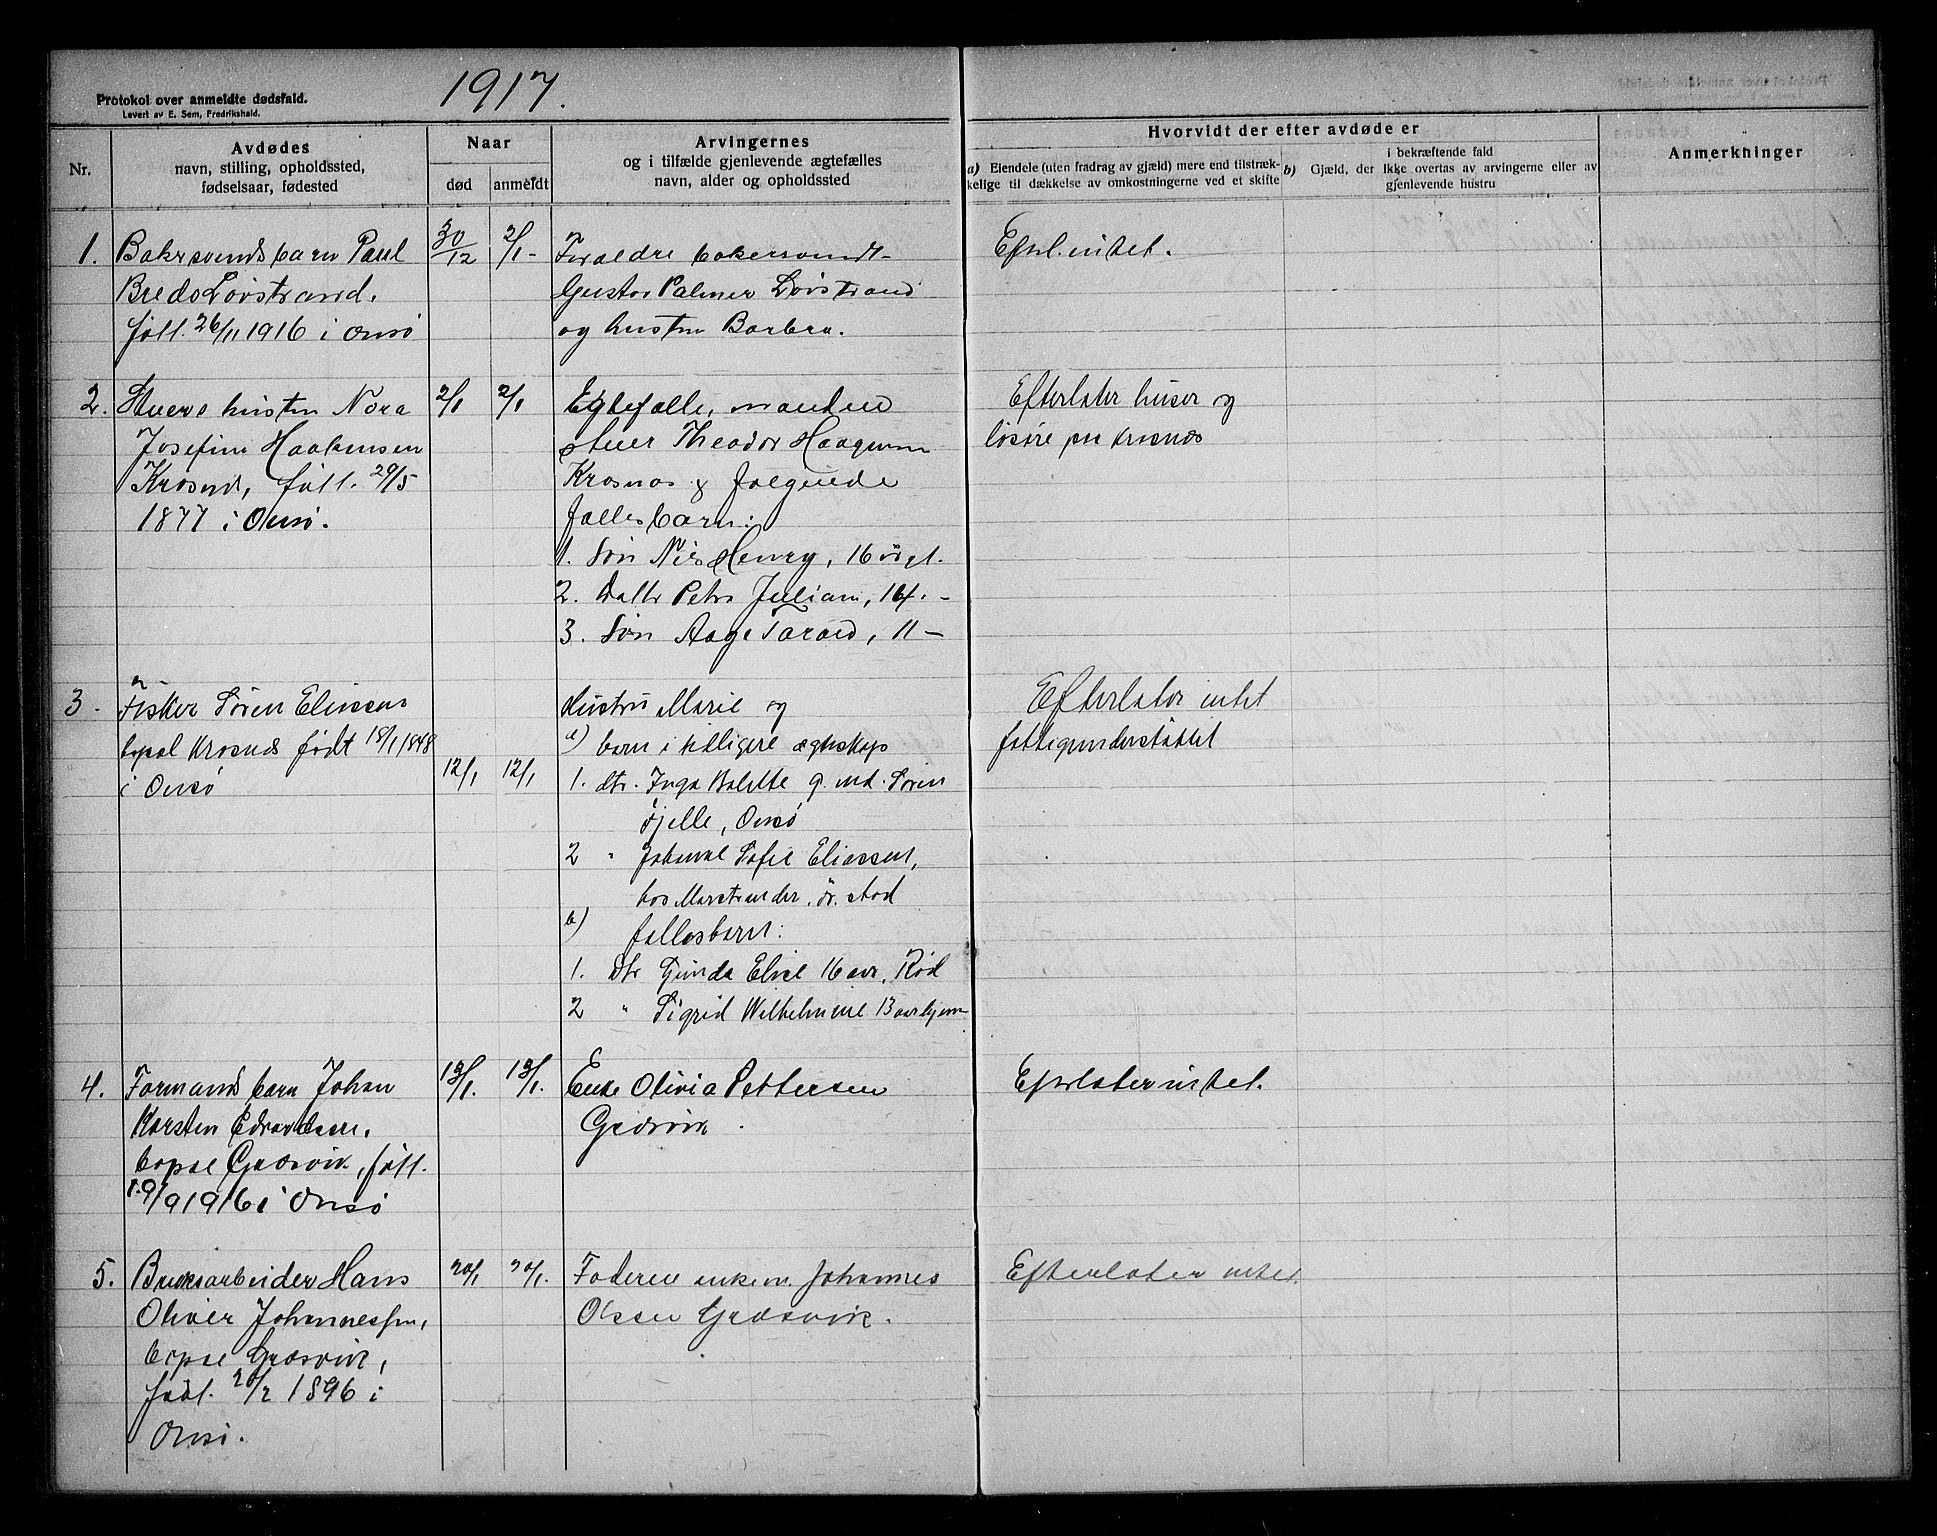 Protokol over anmeldte dødsfald.
Levert av E. Sem, Fredrikshald.
1917.
Nr.
Avdødes
navn, stilling, opholdssted,
fødselsaar, fødested
Naar
død
anmeldt
Arvingernes
og i tilfælde gjenlevende ægtefælles
navn, alder og opholdssted
Hvorvidt der efter avdøde er
a) Eiendele (uten fradrag av gjæld) mere end tilstræk-
kelige til dækkelse av omkostningerne ved et skifte
b) Gjæld, der i bekræftende fald
ikke overtas av arvingerne eller av
gjenlevende hustru
Anmerkninger
1.
Bakersvends barn Paul
Bredo Lövstrand.
född. 26/11 1916 i Onsö
30/12
2/1 -
Foraeldre bakersvendt-
Gustav Palmer Lövstrand
og hustru Barbra.
Efterl. intet.
2.
Stuers hustru Nora
Josefine Haakensen
Krosnes, född. 29/5
1877 i Onsö.
2/1
2/1
Egtefælle, manden
stuer Theodor Haagensen
Krosnes & følgende
fælles barn:
1. Sön Nils Henry, 16 år gl.
2. Datter Petra Juliane, 14. -
3. Sön Aage Harald, 11 -
Efterlater huser og
løsøre paa Krosnæs
3.
Fisker Søren Eliassen
bopæl Krosnes født 18/1 1848
i Onsø
12/1
12/1
Hustru Marie og
a) barn i tidligere ægteskap
1. dtr. Inga Bolette g. md. Søren
Fjelle, Onsø
2 " Johanne Sofie Eliassen,
hos Marstrander, Fr.stad
b) fællesbarn:
1. Dtr Gunda Elise 16 aar, Rød
2 " Sigrid Wilhelmine 13 aar hjem
Efterlater intet
fattigunderstøttet
4.
Formands barn Johan
Karsten Edvardsen.
bopæl Græsvik, född.
19/9 1916 i Onsö
13/1.
13/1.
Enke Olivia Pettersen
Græsvik.
Efterlater intet.
5.
Bruksarbeider Hans
Oliver Johannessen,
bopæl Græsvik,
född. 20/2 1896 i
Onsö.
20/1
20/1.
Faderen enkem. Johannes
Olsen Græsvik.
Efterlater intet.